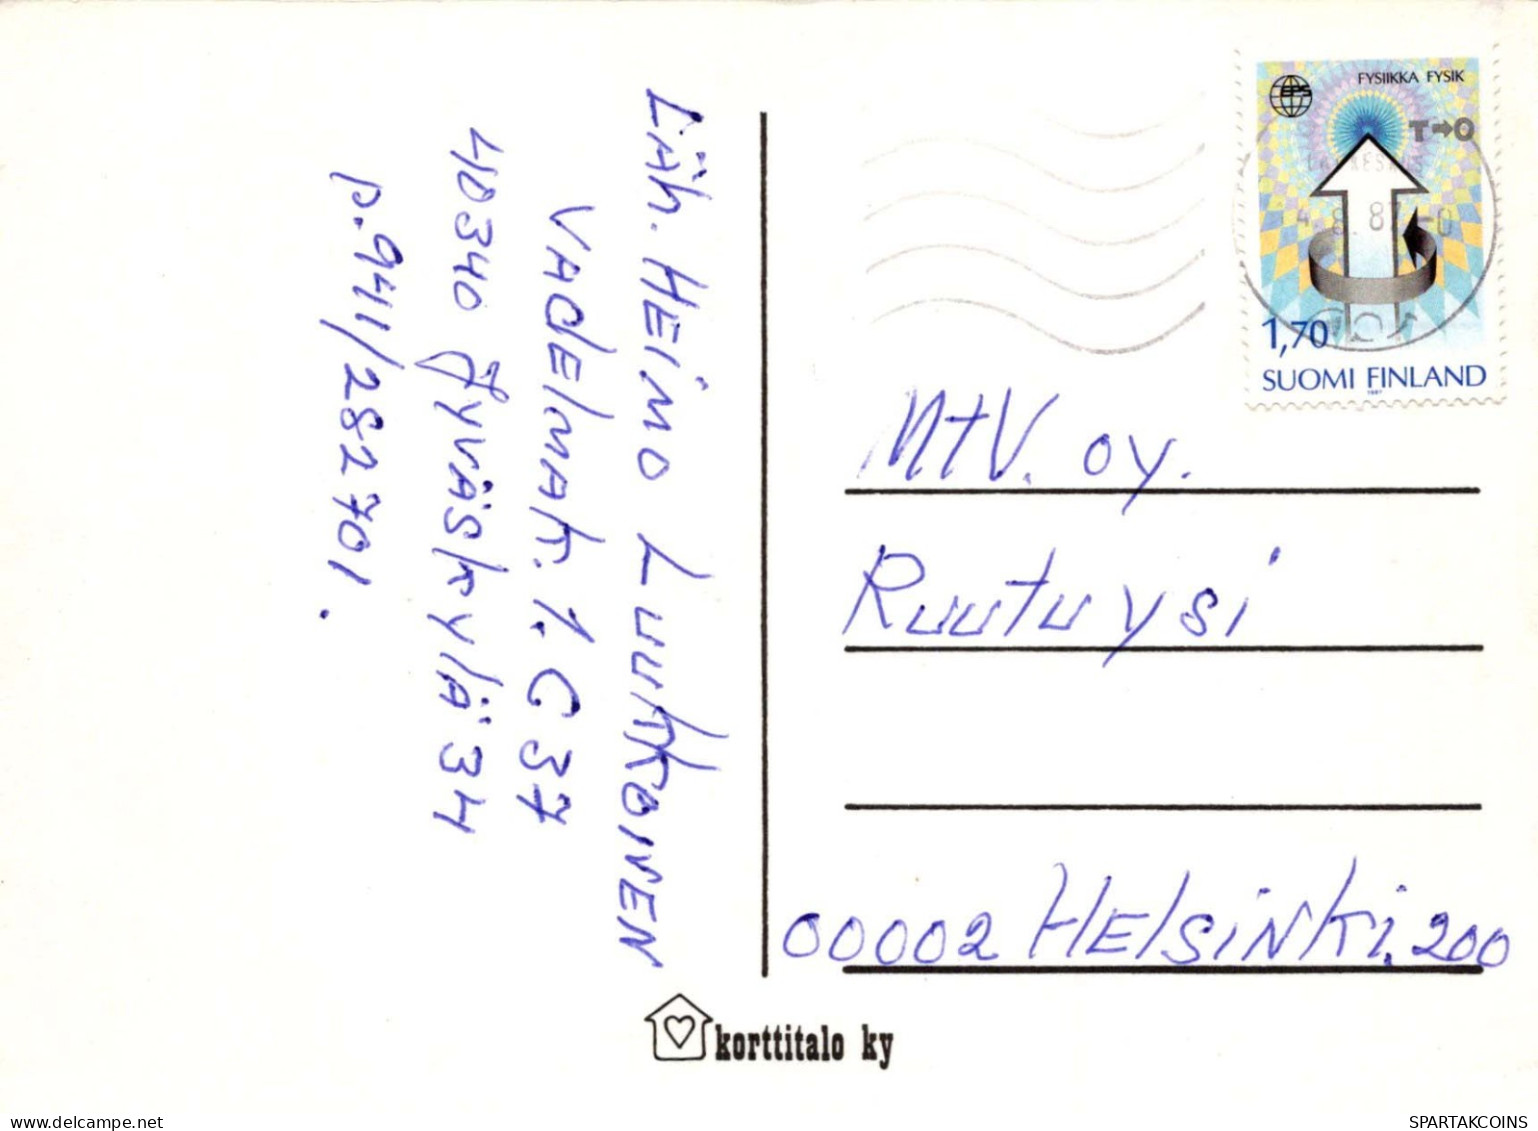 Läh. HEimo LuukkoNEN
VAdElmak. 1. C 37
40340 JyväskyLä 34
p. 941/282701.
FYSIIKKA FYSIK
EPS
T➡O
4.8.87
1,70
SUOMI FINLAND
1987
MtV. oy.
Ruutu ysi
00002 HElsiNki. 200
korttitalo ky
SPARTAKCOINS